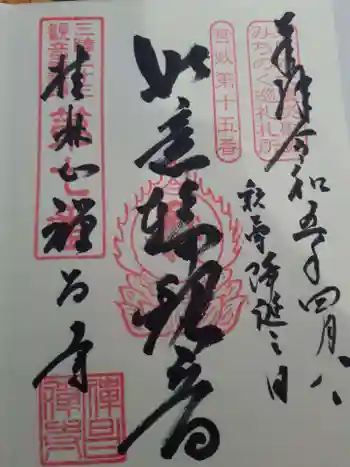 奉拝 令和五年四月八日
釈尊降誕之日
みちのく巡礼札所
第十五番
如意輪観音
三陸三十三
観音
第七番
桂林山禅昌寺